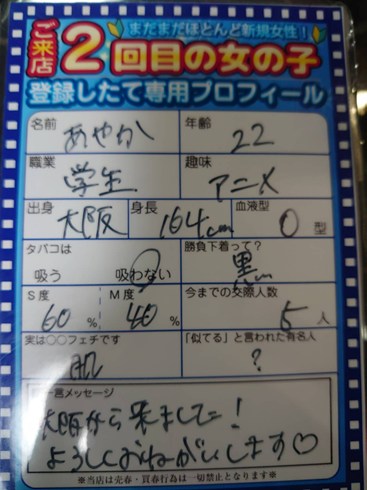 まだまだほとんど新規女性！
ご来店2回目の女の子
登録したて専用プロフィール
名前 あやか 年齢 22
職業 学生 趣味 アニメ
出身 大阪 身長 164cm 血液型 O 型
タバコは 吸う 吸わない 勝負下着って？ 黒
S度 60 % M度 40 % 今までの交際人数 5 人
実は○○フェチです 肌 「似てる」と言われた有名人 ？
一言メッセージ
大阪から来ました！
よろしくおねがいします♡
※当店は売春・買春行為は一切禁止となります※